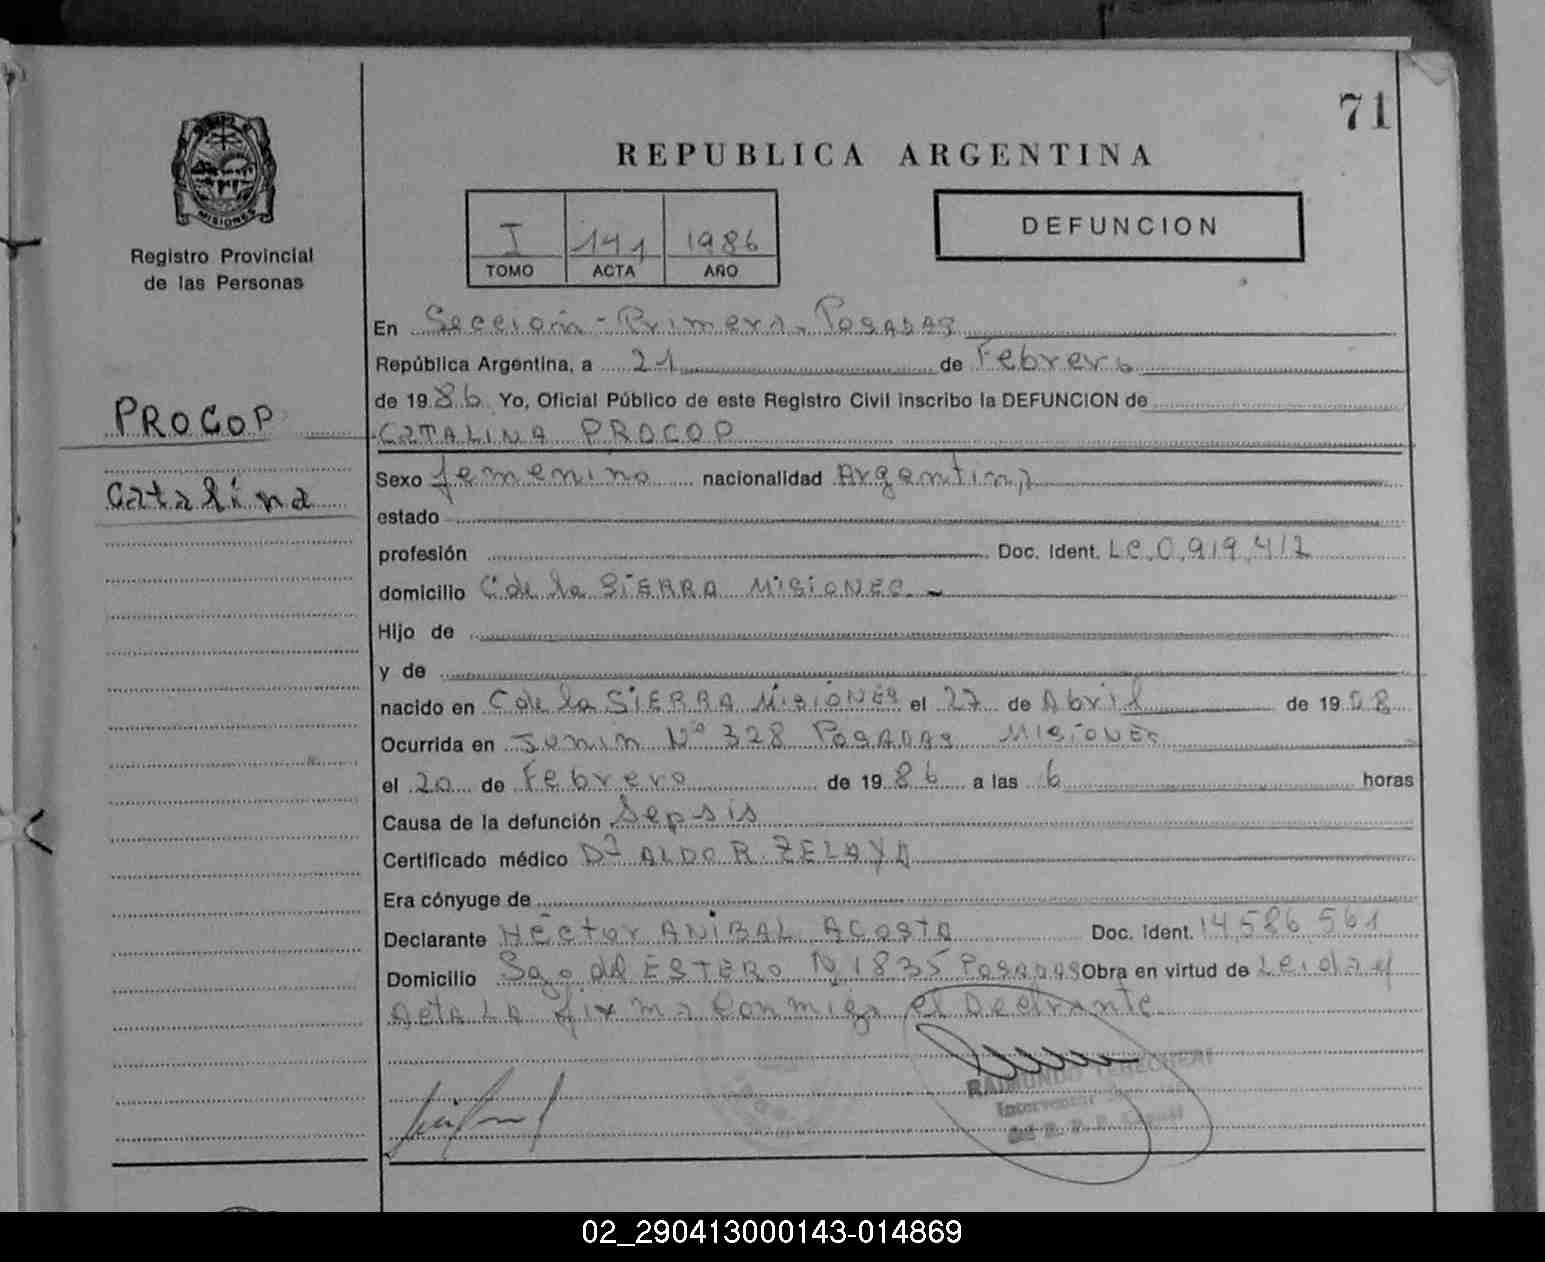 71
REPUBLICA ARGENTINA
MISIONES
Registro Provincial
de las Personas
I 141 1986
TOMO ACTA AÑO
DEFUNCION
PROCOP
Catalina
En Sección - Primera - Posadas
República Argentina, a 21 de Febrero
de 1986 Yo, Oficial Público de este Registro Civil inscribo la DEFUNCION de
CATALINA PROCOP
Sexo femenino nacionalidad Argentina
estado
profesión Doc. Ident. LC.0.919.412
domicilio C de la SIERRA MISIONES
Hijo de
y de
nacido en C de la SIERRA MISIONES el 27 de Abril de 1908
Ocurrida en Junin Nº 328 POSADAS MISIONES
el 20 de Febrero de 1986 a las 6 horas
Causa de la defunción Sepsis
Certificado médico Dr ALDO R. ZELAYA
Era cónyuge de
Declarante Héctor ANIBAL ACOSTA Doc. Ident. 14.586.561
Domicilio Sgo del ESTERO N 1835 POSADAS Obra en virtud de Leida el
Acta LA firma conmigo el Declrante
RAIMUNDO
Interventor
02_290413000143-014869